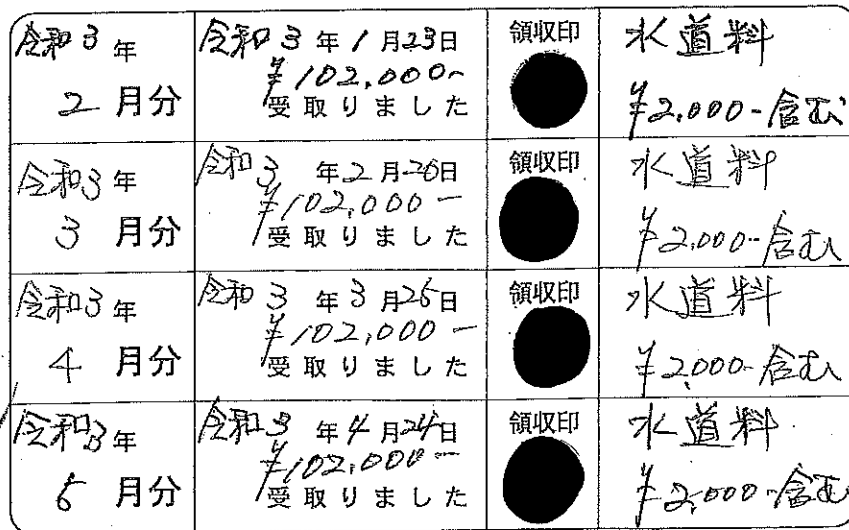 令和3年
2月分
令和3年1月23日
¥102,000-
受取りました
領収印
水道料
¥2,000-含む
令和3年
3月分
令和3年2月26日
¥102,000-
受取りました
領収印
水道料
¥2,000-含む
令和3年
4月分
令和3年3月25日
¥102,000-
受取りました
領収印
水道料
¥2,000-含む
令和3年
5月分
令和3年4月24日
¥102,000-
受取りました
領収印
水道料
¥2,000-含む